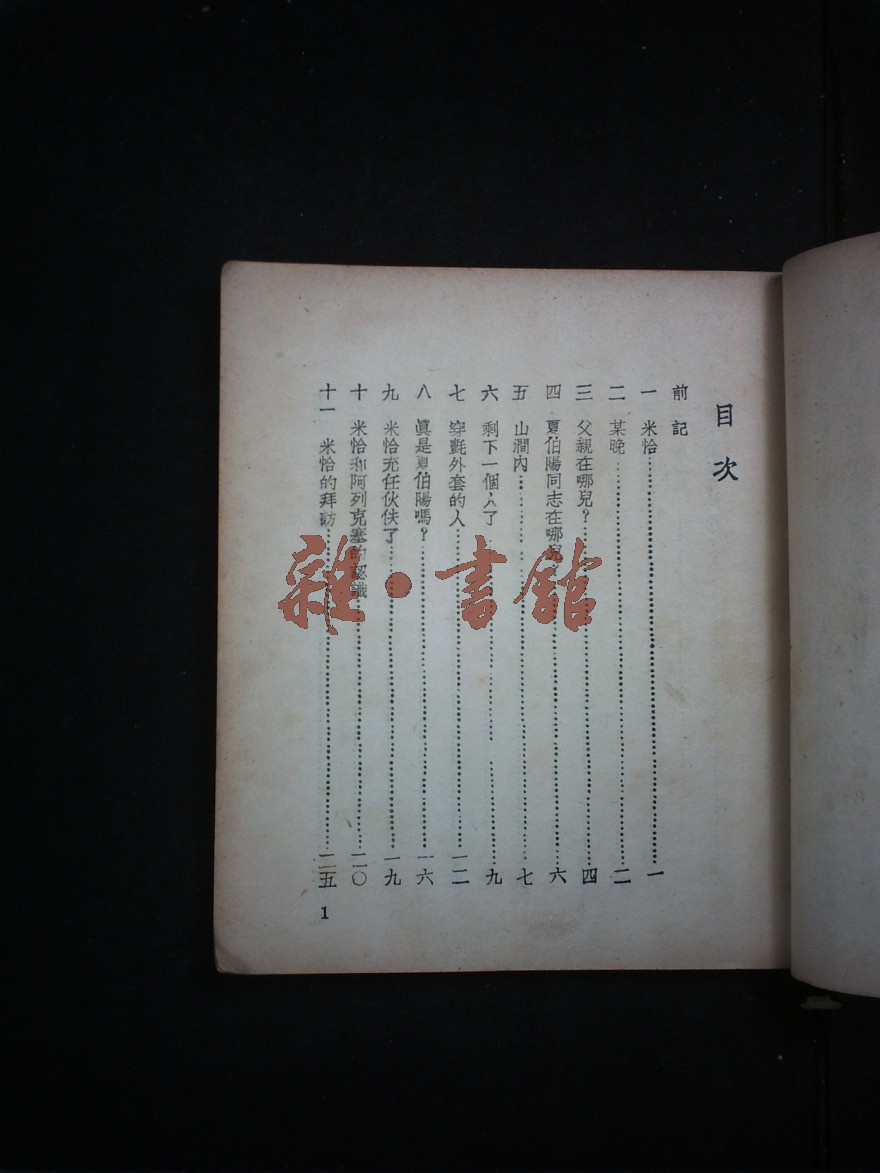 目次
前記
一 米恰…………一
二 某晚…………二
三 父親在哪兒?…………四
四 夏伯陽同志在哪兒?…………六
五 山澗內…………七
六 剩下一個人了…………九
七 穿氈外套的人…………一二
八 眞是夏伯陽嗎?…………一六
九 米恰充任伙伕了…………一九
十 米恰和阿列克塞的認識…………二〇
十一 米恰的拜訪…………二五
1
雜·書館